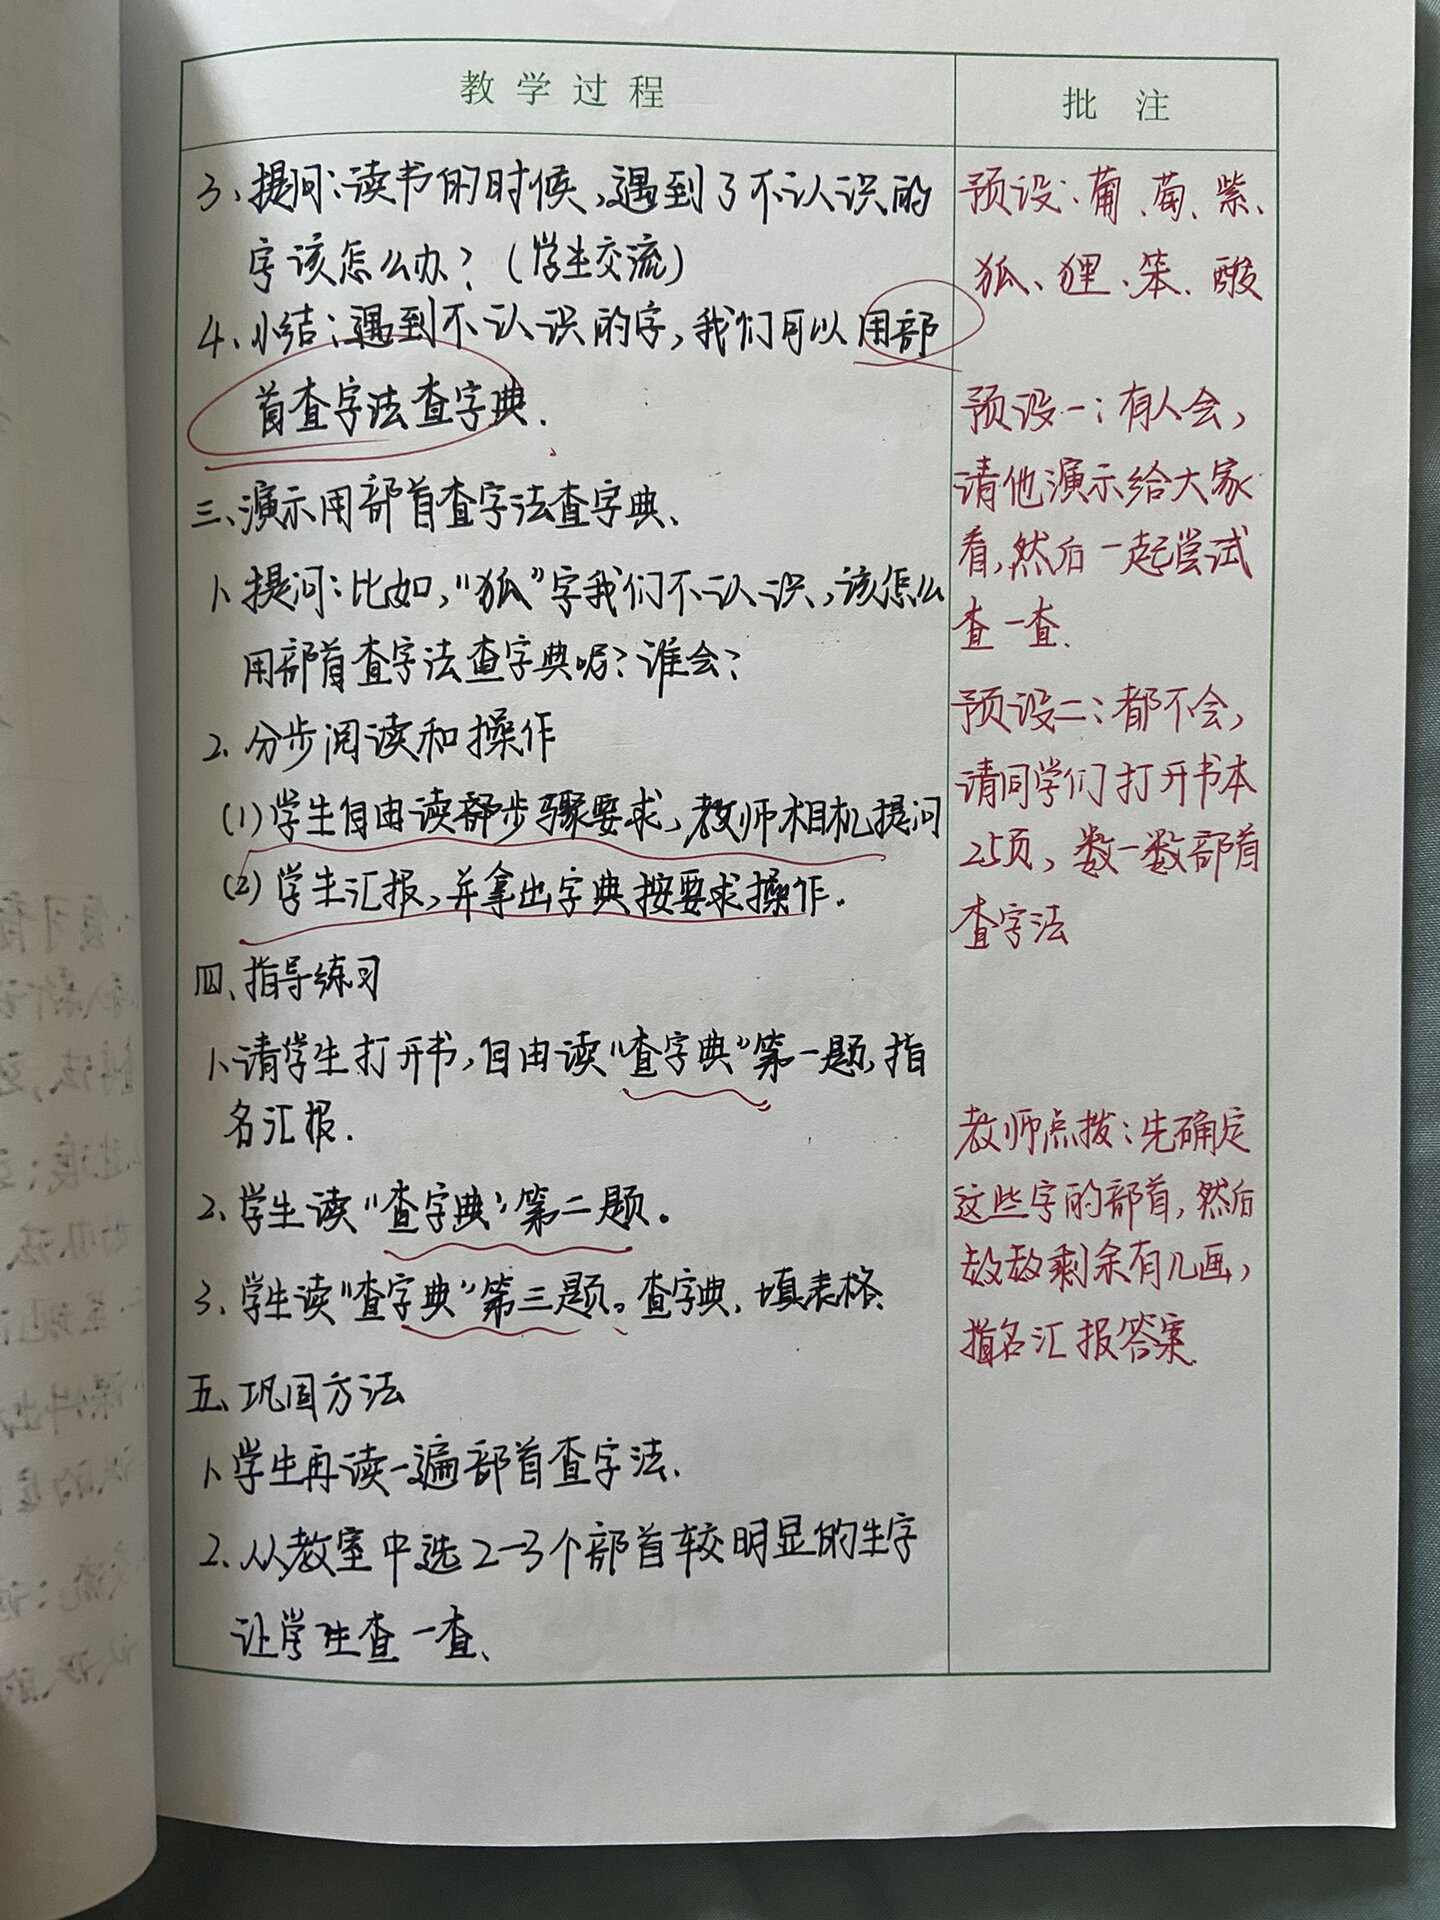 教学过程
3、提问：读书的时候，遇到了不认识的
字该怎么办？（学生交流）
4、小结：遇到不认识的字，我们可以用部
首查字法查字典.
三、演示用部首查字法查字典、
1、提问：比如，“狐”字我们不认识，该怎么
用部首查字法查字典呢？谁会？
2、分步阅读和操作
(1)学生自由读部步骤要求，教师相机提问
(2)学生汇报，并拿出字典按要求操作.
四、指导练习
1、请学生打开书，自由读“查字典”第一题，指
名汇报.
2、学生读“查字典”第二题。
3、学生读“查字典”第三题。查字典、填表格、
五、巩固方法
1、学生再读一遍部首查字法.
2、从教室中选2-3个部首较明显的生字
让学生查一查、
批注
预设：葡、萄、紫、
狐、狸、笨、酸
预设一：有人会，
请他演示给大家
看，然后一起尝试
查一查.
预设二：都不会，
请同学们打开书本
25页，数一数部首
查字法
教师点拨：先确定
这些字的部首，然后
数数剩余有几画，
指名汇报答案.